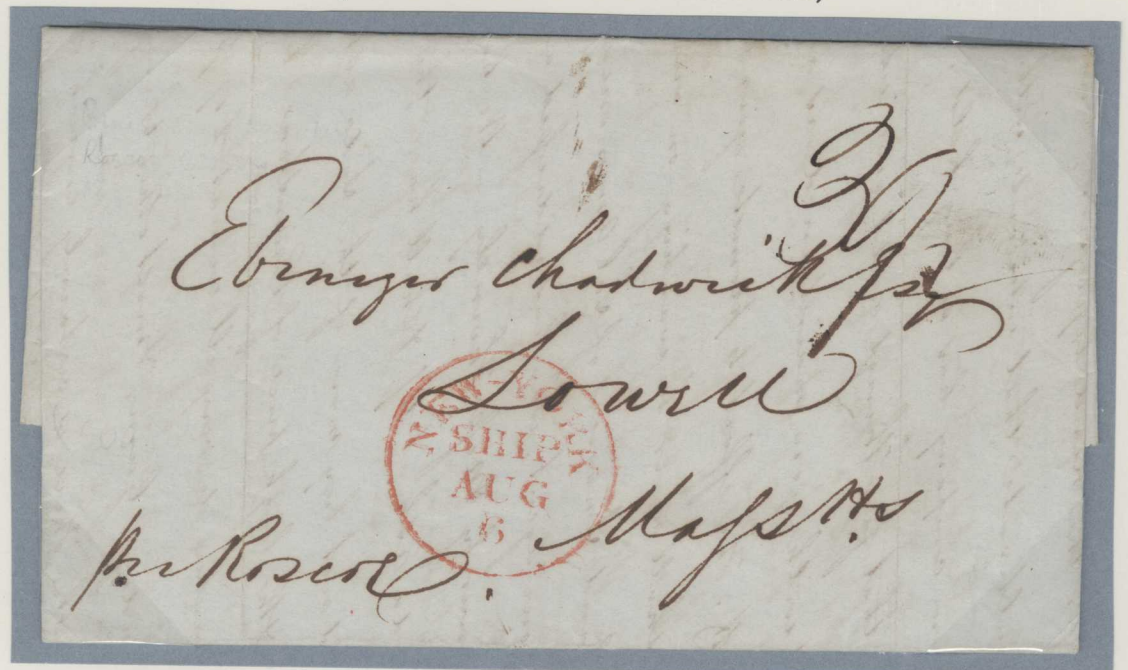 Ebenezer Chadwick Esq
Lowell
Masstts
NEW-YORK
SHIP
AUG
6
Per Roscoe.